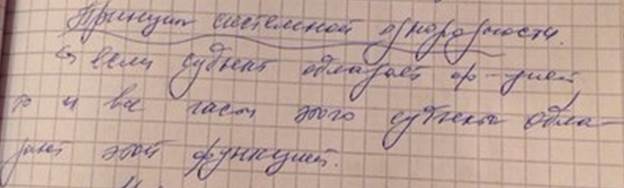 Принцип системной однородности.
↳ если субъект обладает ф-цией,
то и все части этого субъекта обла-
дают этой функцией.